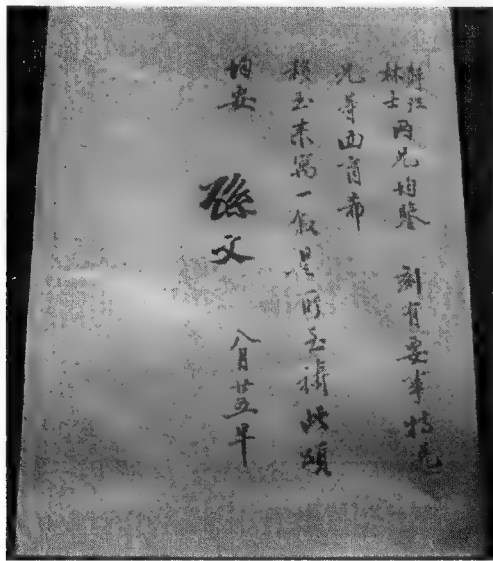 江
林士
兩兄均鑒 刻有要事特
兄等面商希
移玉來寓一敘是所至禱此頌
均安
孫文 八月廿五早